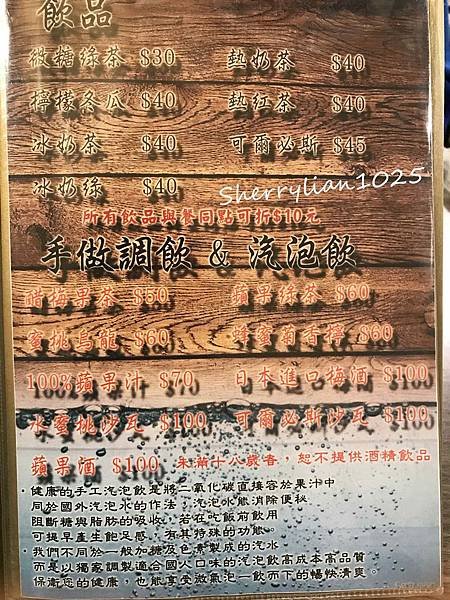 飲品
微糖綠茶 $30 熱奶茶 $40
檸檬冬瓜 $40 熱紅茶 $40
冰奶茶 $40 可爾必斯 $45
冰奶綠 $40
Sherrylian1025
所有飲品與餐同點可折$10元
手做調飲 & 汽泡飲
醋梅果茶 $50 蘋果綠茶 $60
蜜桃烏龍 $60 蜂蜜菊香檸 $60
100%蘋果汁 $70 日本進口梅酒 $100
水蜜桃沙瓦 $100 可爾必斯沙瓦 $100
蘋果酒 $100 未滿十八歲者，恕不提供酒精飲品
·健康的手工汽泡飲是將二氧化碳直接容於果汁中
同於國外汽泡水的作法，汽泡水能消除便秘
阻斷糖與脂肪的吸收，若在吃飯前飲用
可提早產生飽足感，有其特殊的功能。
·我們不同於一般加糖及色素製成的汽水
而是以獨家調製適合國人口味的汽泡飲高成本高品質
保衛您的健康，也能享受微氣泡一飲而下的暢快清爽。